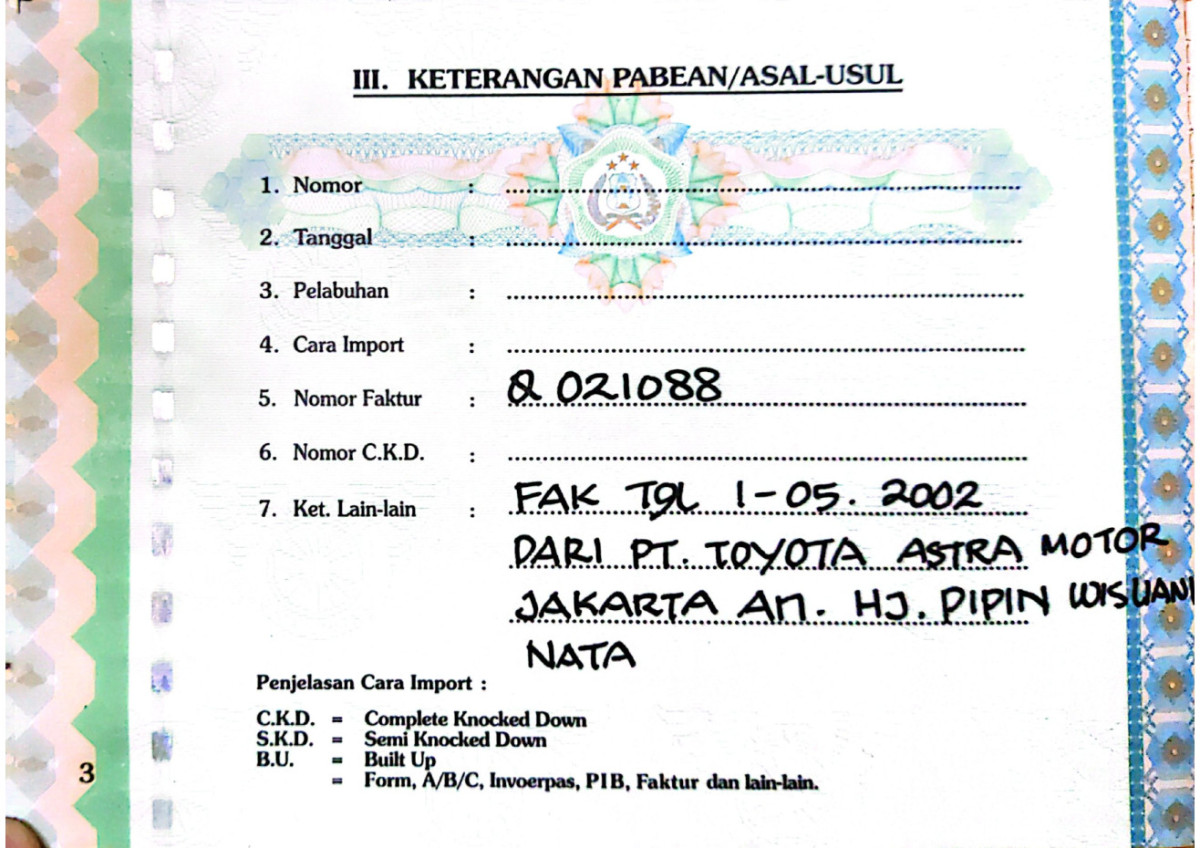 III. KETERANGAN PABEAN/ASAL-USUL
1. Nomor :
2. Tanggal :
3. Pelabuhan :
4. Cara Import :
5. Nomor Faktur : Q 021088
6. Nomor C.K.D. :
7. Ket. Lain-lain : FAK TGL 1-05. 2002
DARI PT. TOYOTA ASTRA MOTOR
JAKARTA An. HJ. PIPIN WISUANI
NATA
Penjelasan Cara Import :
C.K.D. = Complete Knocked Down
S.K.D. = Semi Knocked Down
B.U. = Built Up
= Form, A/B/C, Invoerpas, PIB, Faktur dan lain-lain.
3